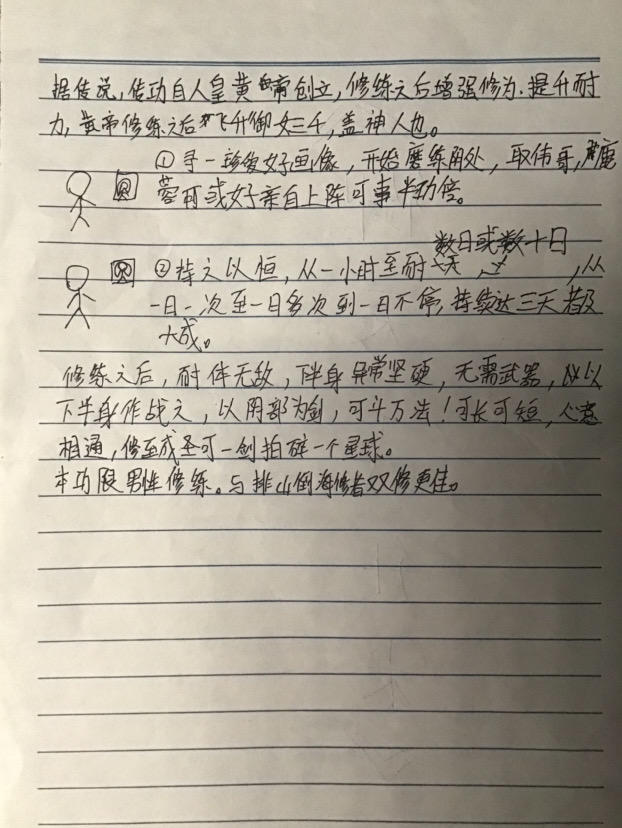 据传说，传功自人皇黄帝创立，修练之后增强修为.提升耐
力，黄帝修练之后飞升御女三千，盖神人也。
①寻一珍爱女好画像，开始磨练阴处，取伟哥，鹿
蓉可或女好亲自上阵可事半功倍。
数日或数十日
②持之以恒，从一小时至耐一天，从
一日一次至一日多次到一日不停，持续达三天者及
大成。
修练之后，耐伴无敌，下半身异常坚硬，无需武器，以
下半身作战之，以阴部为剑，可斗万法！可长可短，心意
相通，修至成圣可一剑拍碎一个星球。
本功限男性修练。与排山倒海修者双修更佳。